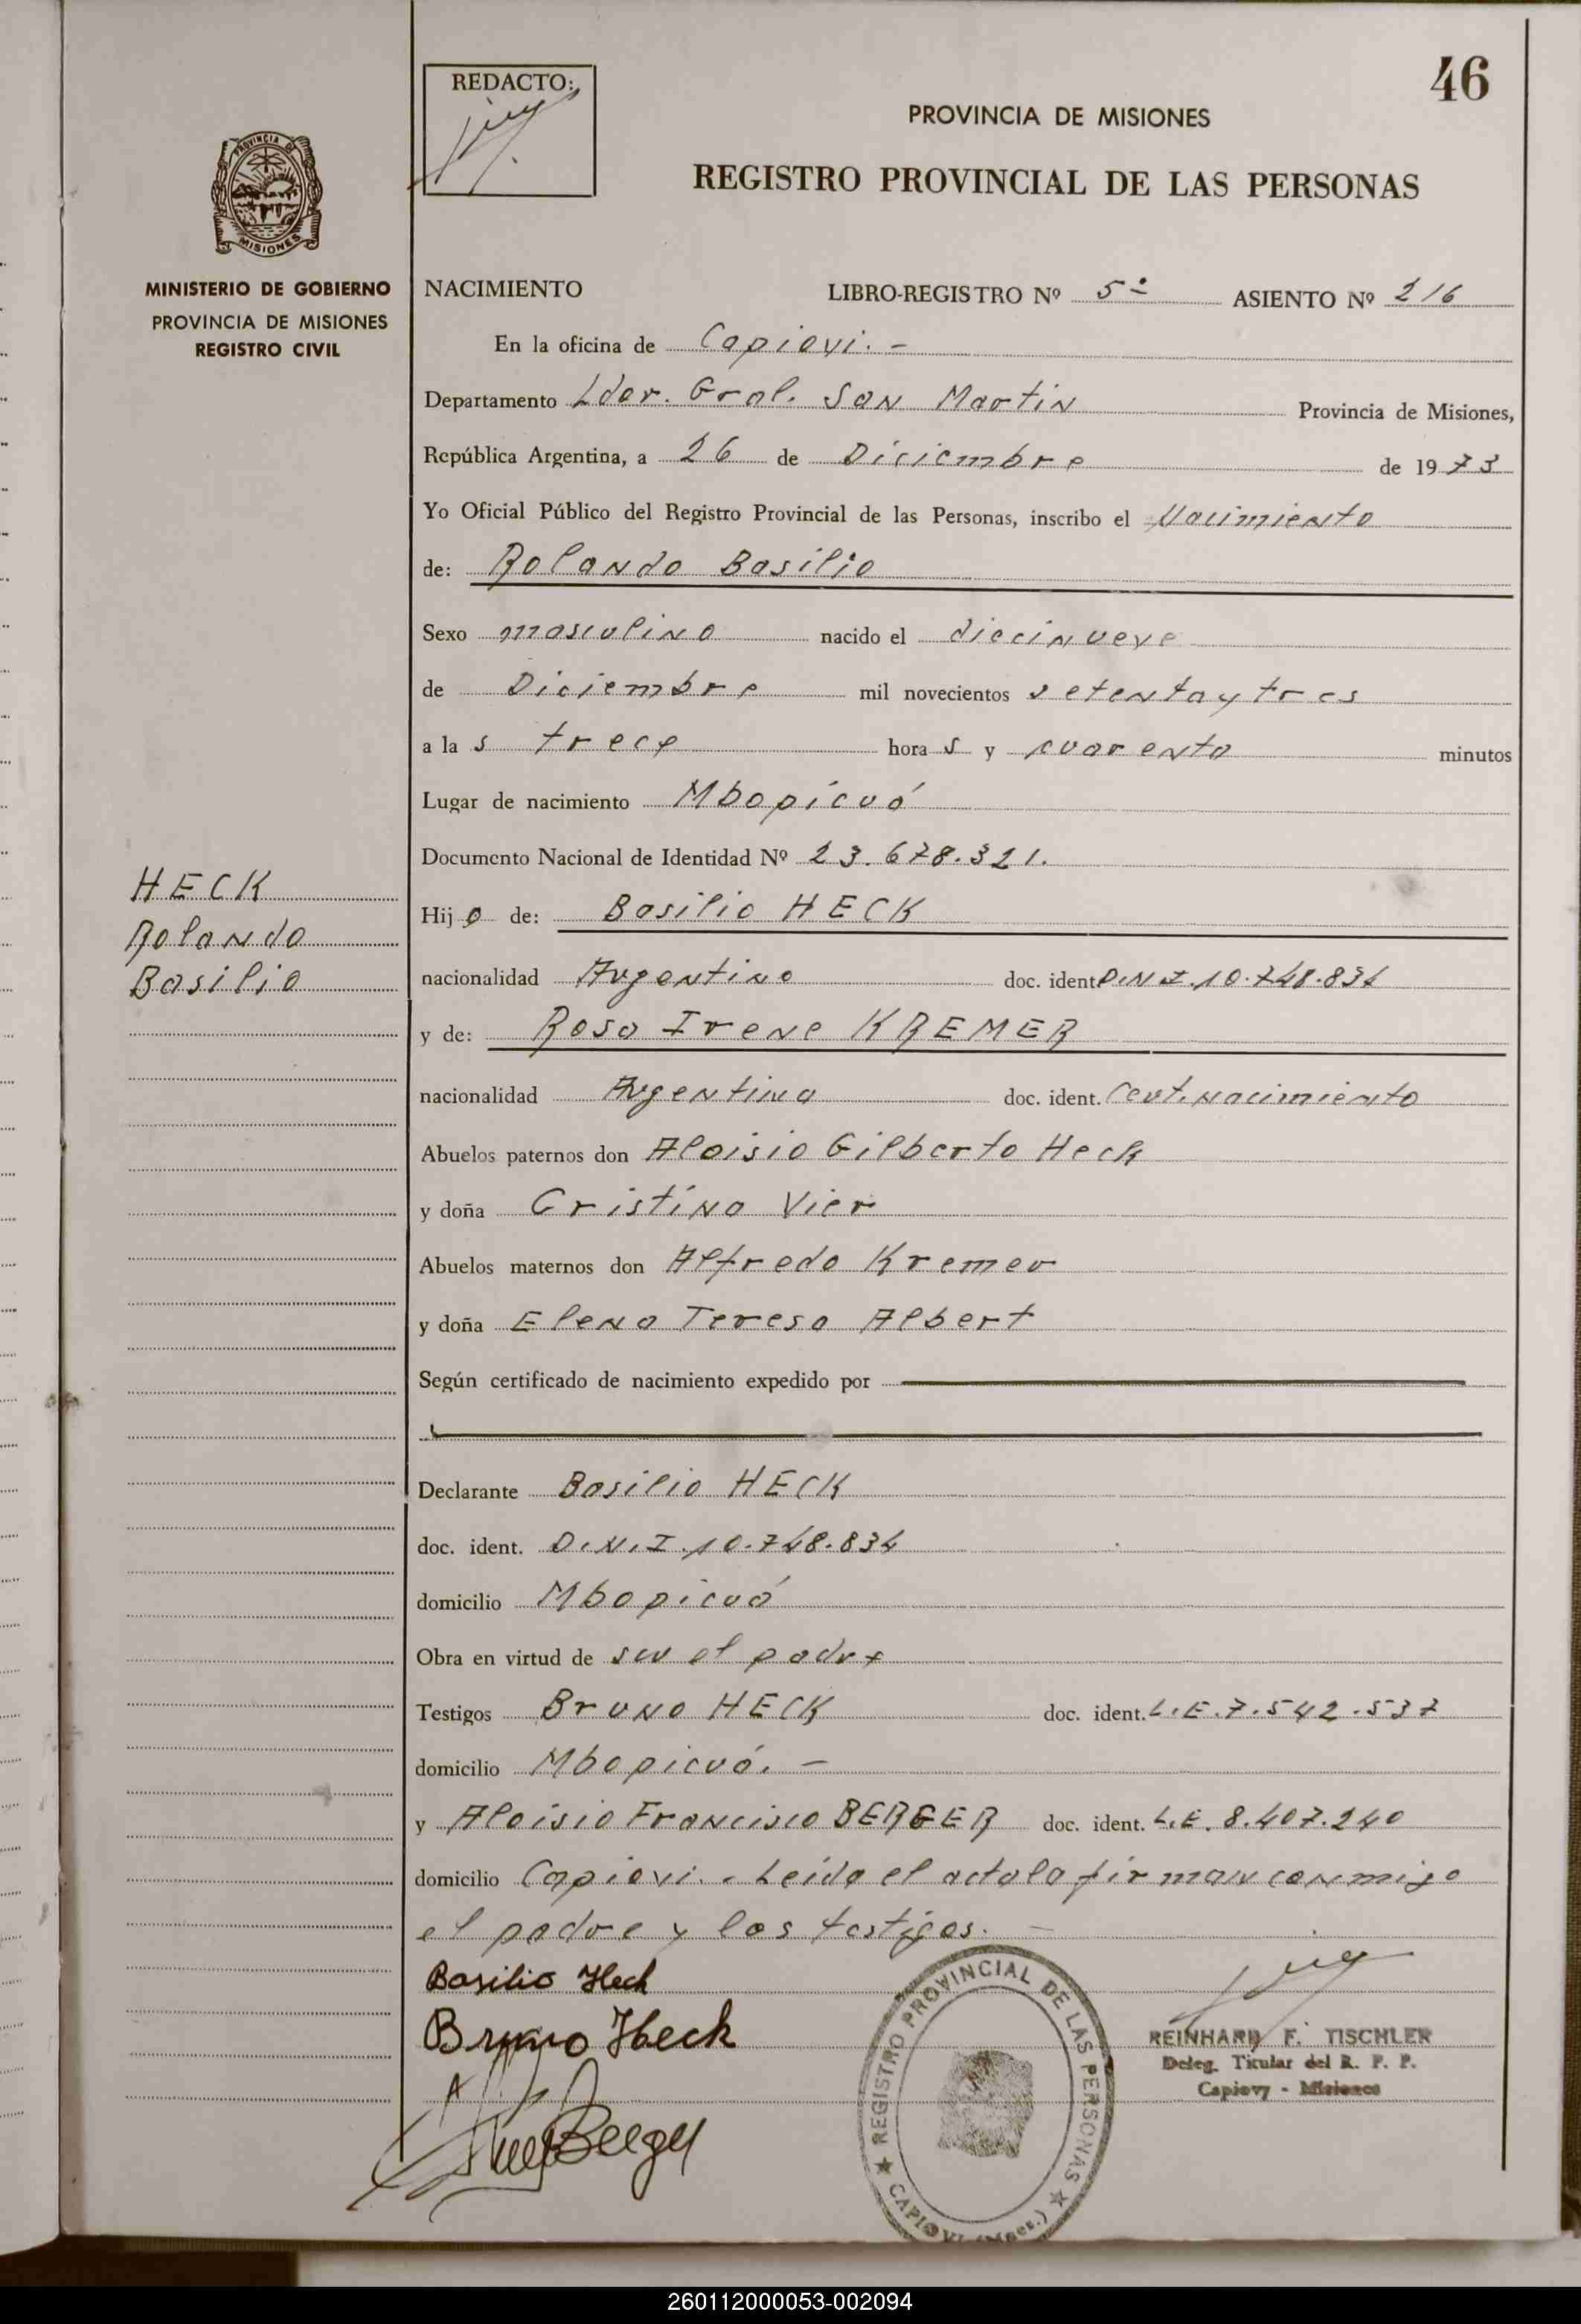 46
REDACTO:
PROVINCIA DE MISIONES
REGISTRO PROVINCIAL DE LAS PERSONAS
PROVINCIA DE
MISIONES
MINISTERIO DE GOBIERNO
PROVINCIA DE MISIONES
REGISTRO CIVIL
NACIMIENTO LIBRO-REGISTRO Nº 5º ASIENTO Nº 216
En la oficina de Capiovi. -
Departamento Ldor. Gral. San Martin Provincia de Misiones,
República Argentina, a 26 de Diciembre de 1973
Yo Oficial Público del Registro Provincial de las Personas, inscribo el Nacimiento
de: Rolando Basilio
Sexo masculino nacido el diecinueve
de Diciembre mil novecientos setenta y tres
a las trece horas y cuarenta minutos
Lugar de nacimiento Mbopicuá
Documento Nacional de Identidad Nº 23.678.321.
HECK
Rolando
Basilio
Hijo de: Basilio HECK
nacionalidad Argentina doc. ident. D.N.I. 10.748.834
y de: Rosa Irene KREMER
nacionalidad Argentina doc. ident. Cert. nacimiento
Abuelos paternos don Aloisio Gilberto Heck
y doña Cristina Vier
Abuelos maternos don Alfredo Kremer
y doña Elena Teresa Albert
Según certificado de nacimiento expedido por
Declarante Basilio HECK
doc. ident. D.N.I. 10.748.834
domicilio Mbopicuá
Obra en virtud de ser el padre
Testigos Bruno HECK doc. ident. L.E. 7.542.537
domicilio Mbopicuá. -
y Aloisio Francisco BERGER doc. ident. L.E. 8.407.240
domicilio Capiovi. - Leída el acta la firman conmigo
el padre y los testigos. -
Basilio Heck
Bruno Heck
Berger
REGISTRO PROVINCIAL DE LAS PERSONAS
CAPIOVI (Mnes.)
REINHARD F. TISCHLER
Deleg. Titular del R. P. P.
Capiovy - Misiones
260112000053-002094